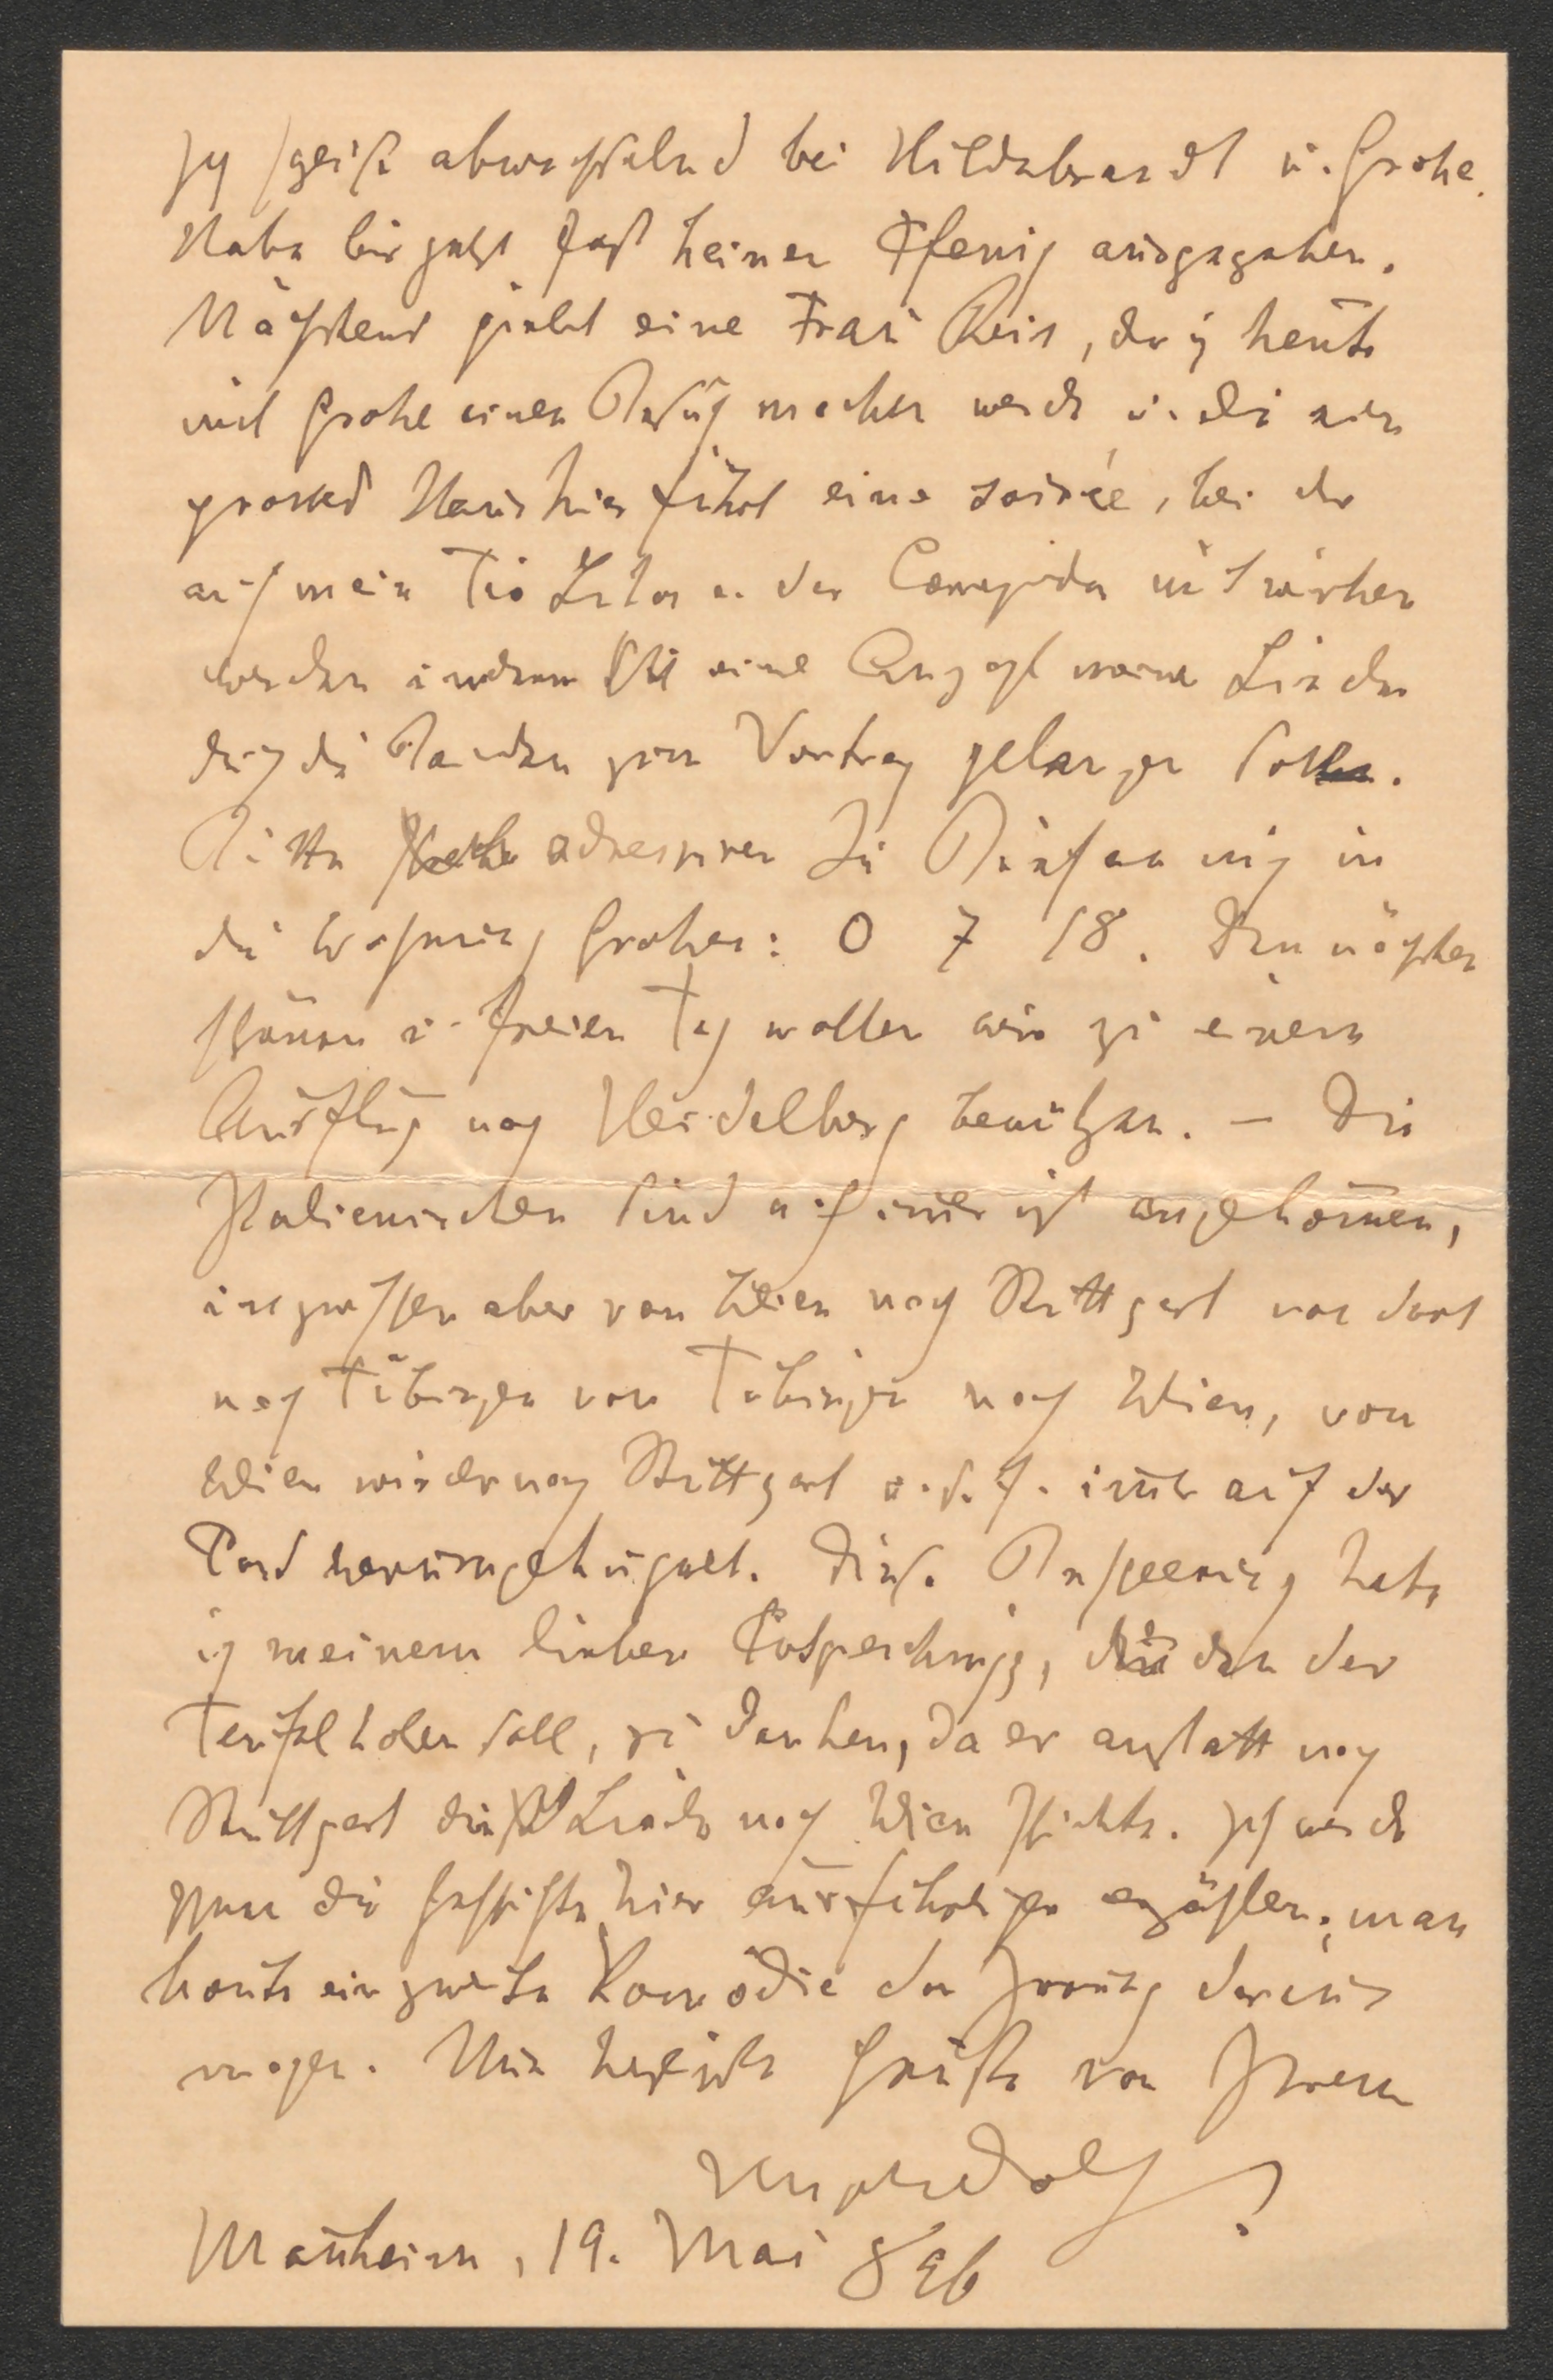 Ich speise abwechselnd bei Hildebrandt u. Grohe.
Habe bis jetzt fast keinen Pfenig ausgegeben.
Nächstens giebt eine Frau Reis, der ich heute
mit Grohe einen Besuch machen werde u. die ein
grosses Haus hier führt eine soirée, bei der
auch mein Tio Lukas u. der Corregidor mitwirken
werden indem eine Anzahl meiner Lieder
durch die Beiden zum Vortrag gelangen soll.
Bitte adressiren Sie Briefe an mich in
die Wohnung Grohes: O 7 18. Den nächsten
schönen u. freien Tag wollen wir zu einem
Ausflug nach Heidelberg benützen. – Die
Italienischen sind noch imer nicht angekomen,
inzwischen aber von Wien nach Stuttgart von dort
nach Tübingen von Tübingen nach Wien, von
Wien wieder nach Stuttgart u. s. f. imer auf der
Post herumgekugelt. Diese Bescheerung habe
ich meinem lieben Potpeschnigg, den der
Teufel holen soll, zu danken, da er anstatt nach
Stuttgart die Lieder nach Wien schickte. Ich werde
Ihnen die Geschichte hier ausführlicher erzählen; man
könte ein zweite Komödie der Irrung daraus
machen. Nun herzlichste Grüsse von Ihrem
Manheim, 19. Mai 896